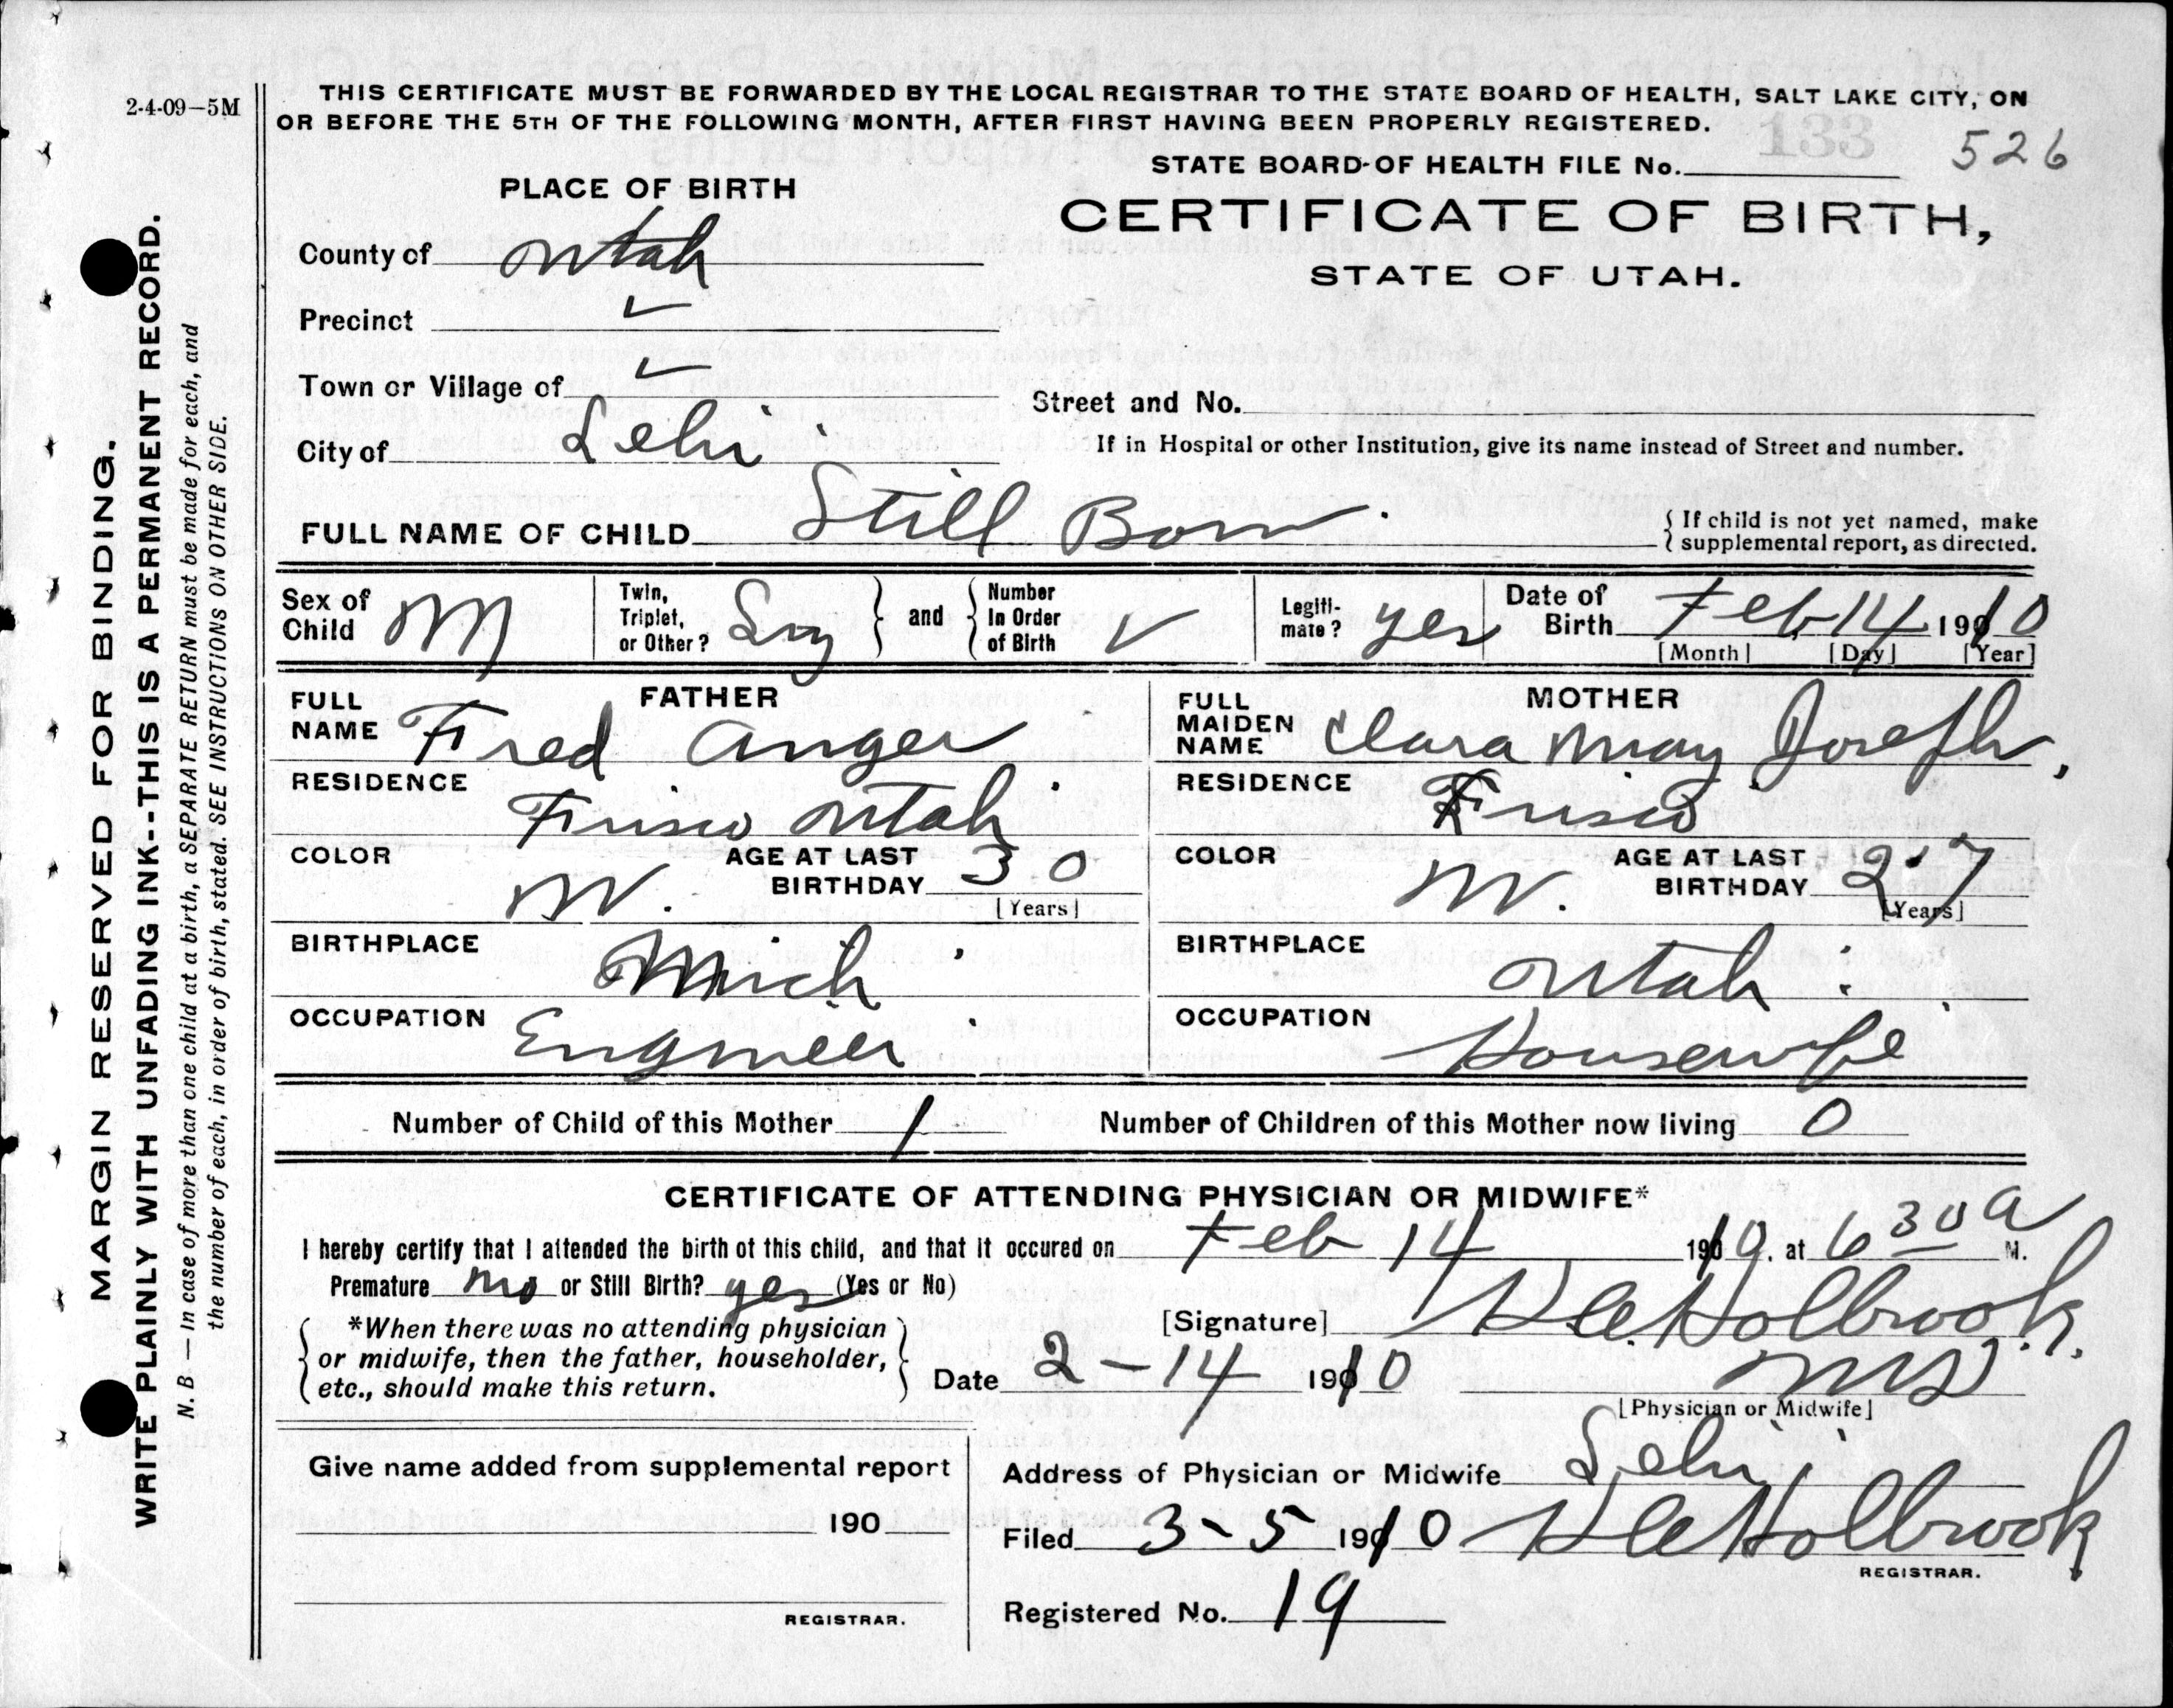 2-4-09—5M
THIS CERTIFICATE MUST BE FORWARDED BY THE LOCAL REGISTRAR TO THE STATE BOARD OF HEALTH, SALT LAKE CITY, ON
OR BEFORE THE 5TH OF THE FOLLOWING MONTH, AFTER FIRST HAVING BEEN PROPERLY REGISTERED.
133 526
STATE BOARD OF HEALTH FILE No.
PLACE OF BIRTH
CERTIFICATE OF BIRTH,
STATE OF UTAH.
County of Utah
Precinct ✓
Town or Village of ✓
Street and No.
City of Lehi
If in Hospital or other Institution, give its name instead of Street and number.
FULL NAME OF CHILD Still Born.
{ If child is not yet named, make
supplemental report, as directed.
Sex of Child M
Twin, Triplet, or Other? } and { Number In Order of Birth ✓
Legitimate? yes
Date of Birth Feb 14 1910
[Month] [Day] [Year]
FATHER
FULL NAME Fred Anger
RESIDENCE Frisco Utah
COLOR W. AGE AT LAST BIRTHDAY 30
[Years]
BIRTHPLACE Mich
OCCUPATION Engineer
MOTHER
FULL MAIDEN NAME Clara May Joseph,
RESIDENCE Frisco
COLOR W. AGE AT LAST BIRTHDAY 27
[Years]
BIRTHPLACE Utah
OCCUPATION Housewife
Number of Child of this Mother 1 Number of Children of this Mother now living 0
CERTIFICATE OF ATTENDING PHYSICIAN OR MIDWIFE*
I hereby certify that I attended the birth of this child, and that it occured on Feb 14 1910. at 6 30 A M.
Premature no or Still Birth? yes (Yes or No)
*When there was no attending physician
or midwife, then the father, householder,
etc., should make this return.
[Signature] Holbrook.
Date 2-14 1910 MD
[Physician or Midwife]
Give name added from supplemental report
190
REGISTRAR.
Address of Physician or Midwife Lehi
Filed 3-5 1910 Holbrook
REGISTRAR.
Registered No. 19
MARGIN RESERVED FOR BINDING.
WRITE PLAINLY WITH UNFADING INK--THIS IS A PERMANENT RECORD.
N. B — In case of more than one child at a birth, a SEPARATE RETURN must be made for each, and
the number of each, in order of birth, stated. SEE INSTRUCTIONS ON OTHER SIDE.